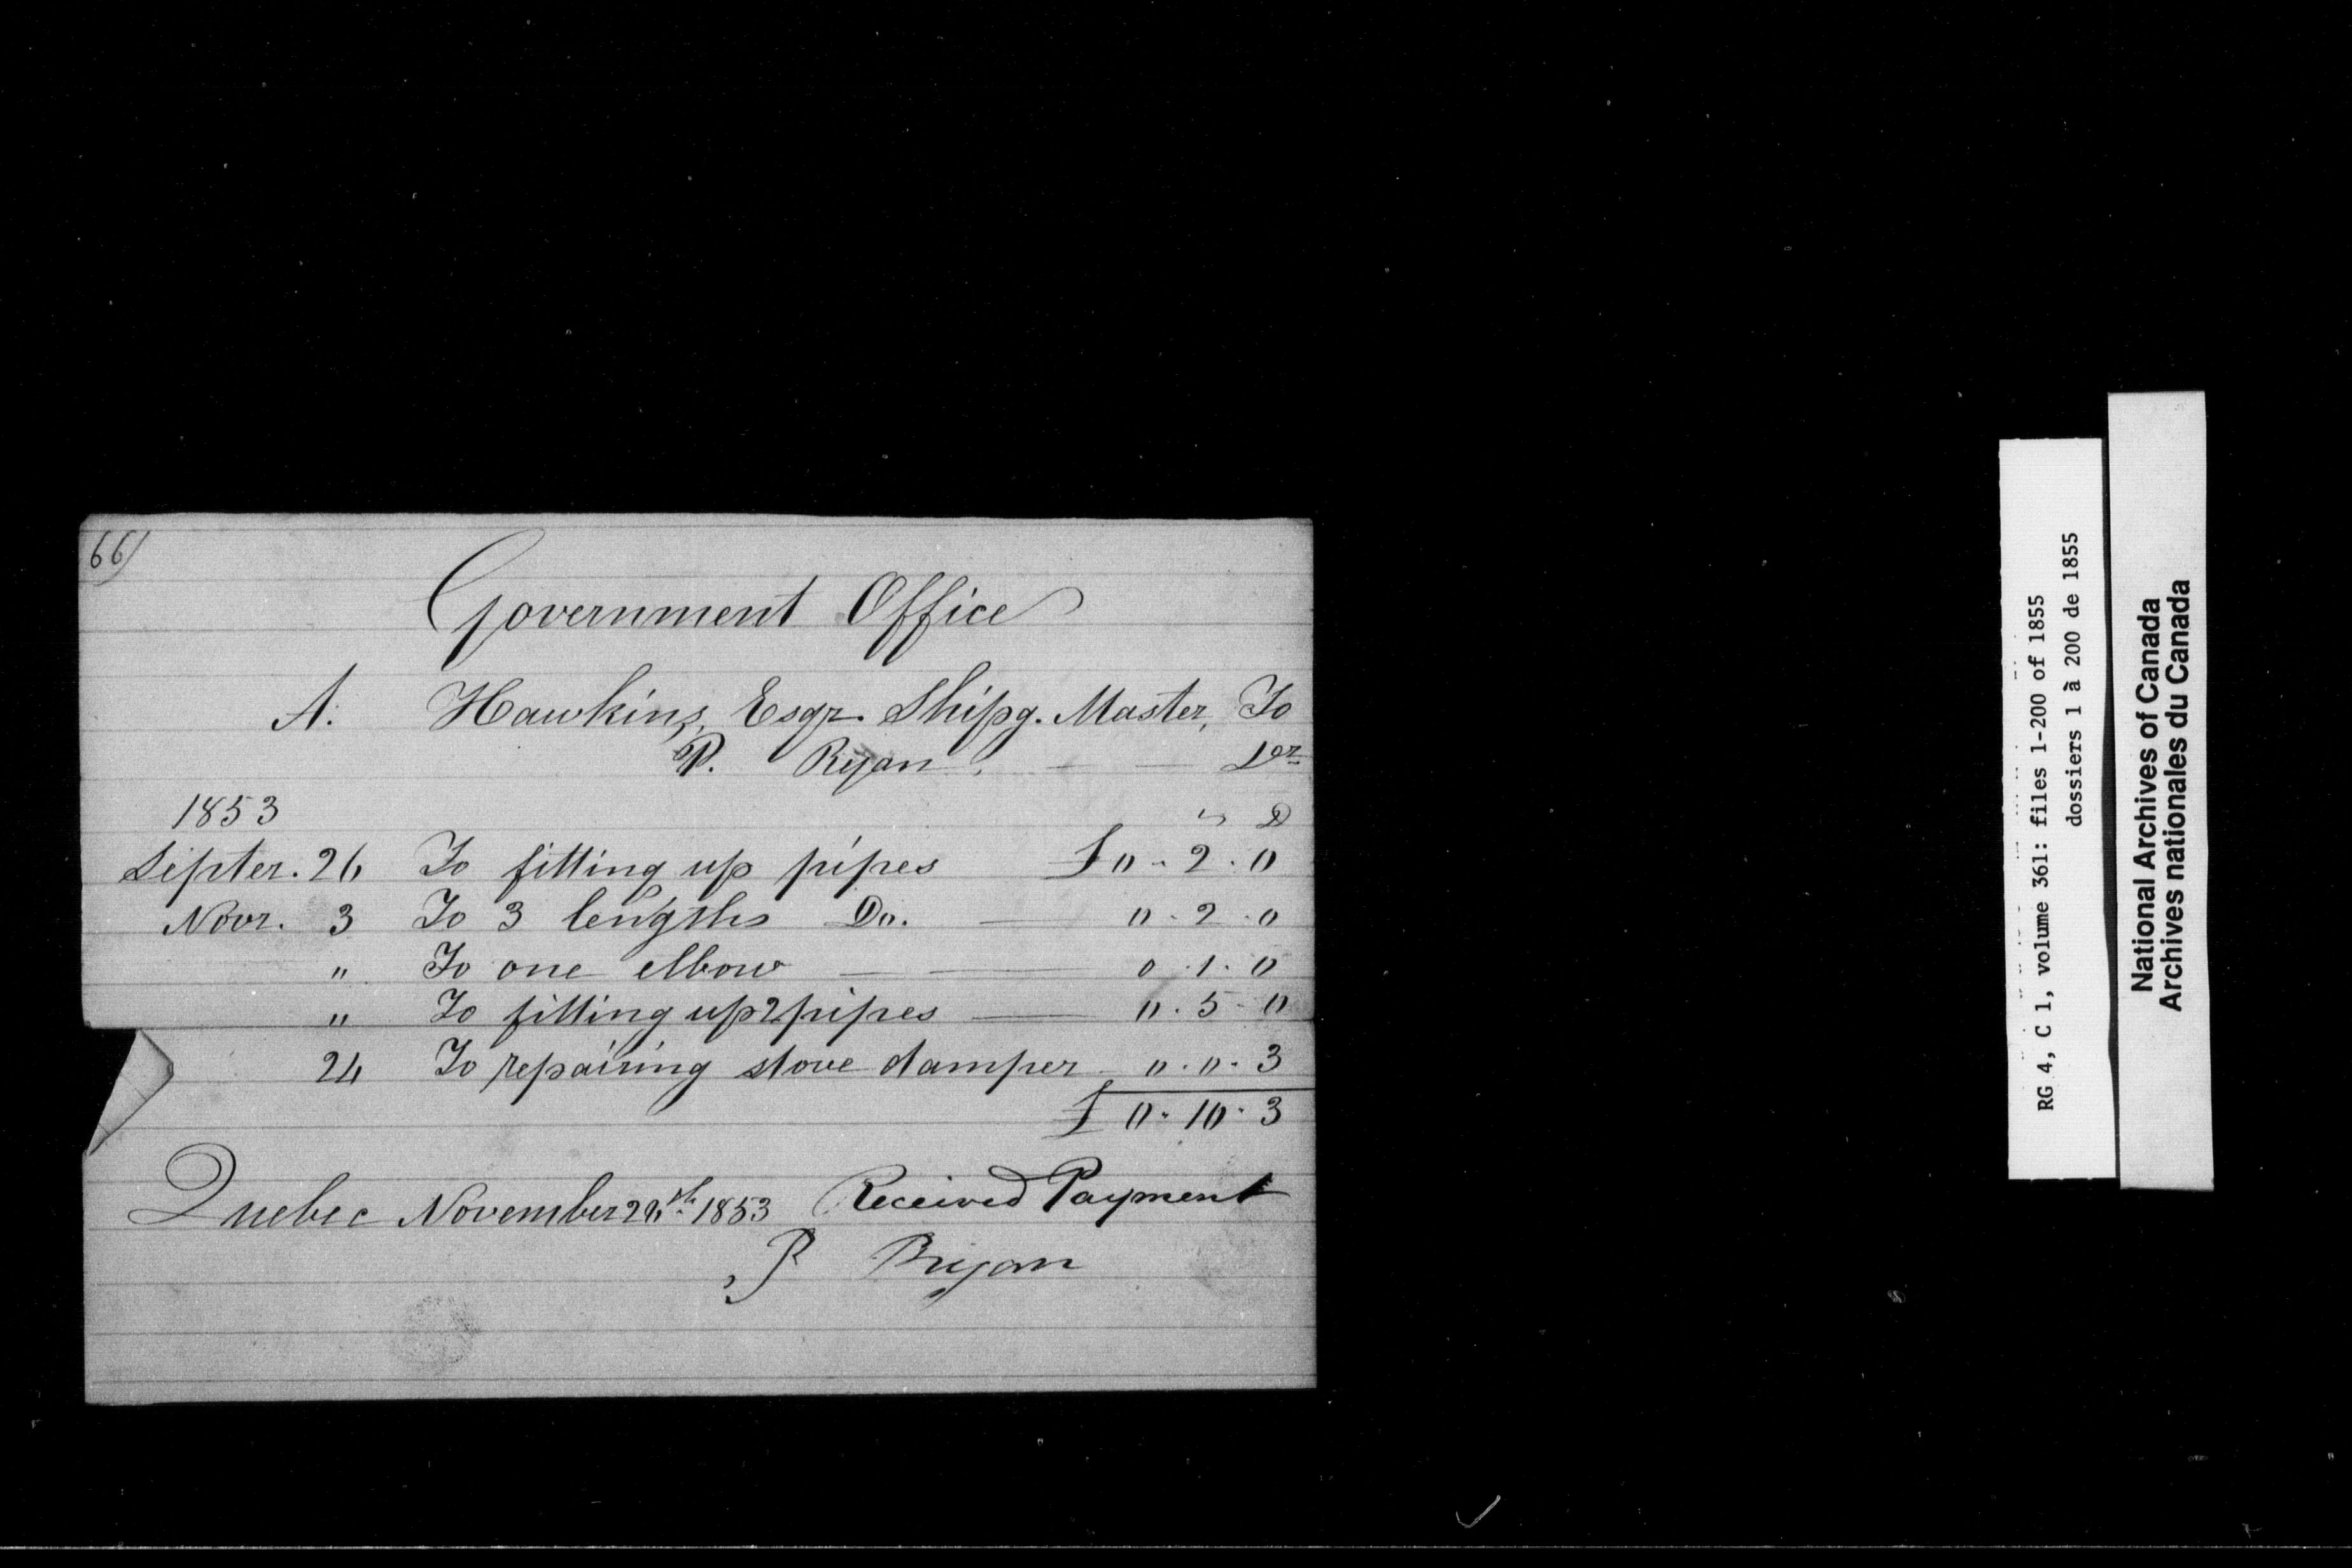 66)
Government Office
A. Hawkins, Esqr. Shipg. Master, To
P. Ryan. Dr
1853 s D
Septer. 26 To fitting up pipes £0.2.0
Novr. 3 To 3 lengths Do. 0.2.0
" To one elbow 0.1.0
" To fitting up 2 pipes 0.5.0
24 To repairing stove damper 0.0.3
£0.10.3
Quebec November 1853 Received Payment
P Ryan
RG 4, C 1, volume 361: files 1-200 of 1855
dossiers 1 à 200 de 1855
National Archives of Canada
Archives nationales du Canada